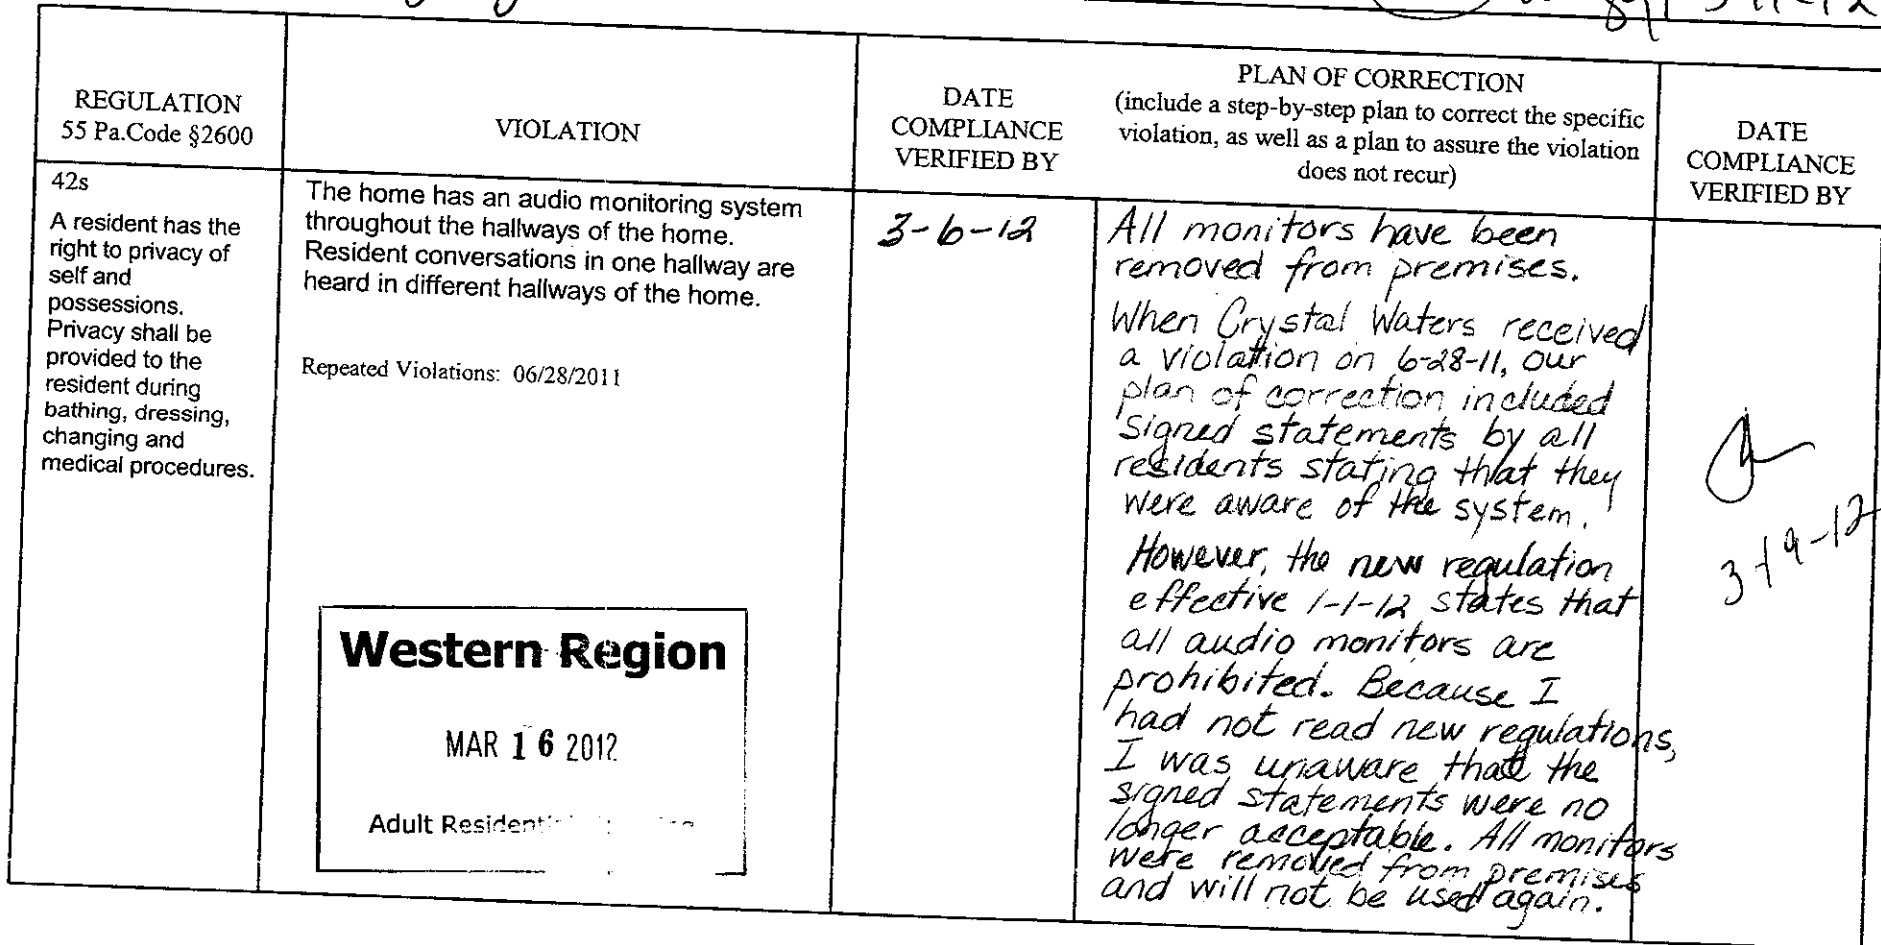 3-11-12
REGULATION
55 Pa.Code §2600
VIOLATION
DATE
COMPLIANCE
VERIFIED BY
PLAN OF CORRECTION
(include a step-by-step plan to correct the specific
violation, as well as a plan to assure the violation
does not recur)
DATE
COMPLIANCE
VERIFIED BY
42s
A resident has the
right to privacy of
self and
possessions.
Privacy shall be
provided to the
resident during
bathing, dressing,
changing and
medical procedures.
The home has an audio monitoring system
throughout the hallways of the home.
Resident conversations in one hallway are
heard in different hallways of the home.
Repeated Violations: 06/28/2011
Western Region
MAR 16 2012
Adult Resident
3-6-12
All monitors have been
removed from premises.
When Crystal Waters received
a violation on 6-28-11, our
plan of correction included
signed statements by all
residents stating that they
were aware of the system.
However, the new regulation
effective 1-1-12 states that
all audio monitors are
prohibited. Because I
had not read new regulations,
I was unaware that the
signed statements were no
longer acceptable. All monitors
were removed from premises
and will not be used again.
3-19-12